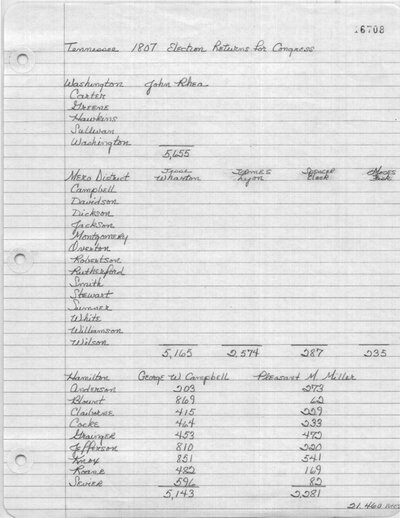 16708
Tennessee 1807 Election Returns for Congress
Washington John Rhea
Carter
Greene
Hawkins
Sullivan
Washington
5,655
Mero District Jesse Wharton James Lyon Spencer Moses Fisk
Campbell
Davidson
Dickson
Jackson
Montgomery
Overton
Robertson
Rutherford
Smith
Stewart
Sumner
White
Williamson
Wilson
5,165 2,574 287 235
Hamilton George W Campbell Pleasant M. Miller
Anderson 203 273
Blount 869 62
Claiborne 415 229
Cocke 464 233
Grainger 453 472
Jefferson 810 220
Knox 851 541
Roane 482 169
Sevier 596 82
5,143 2,281
21,460